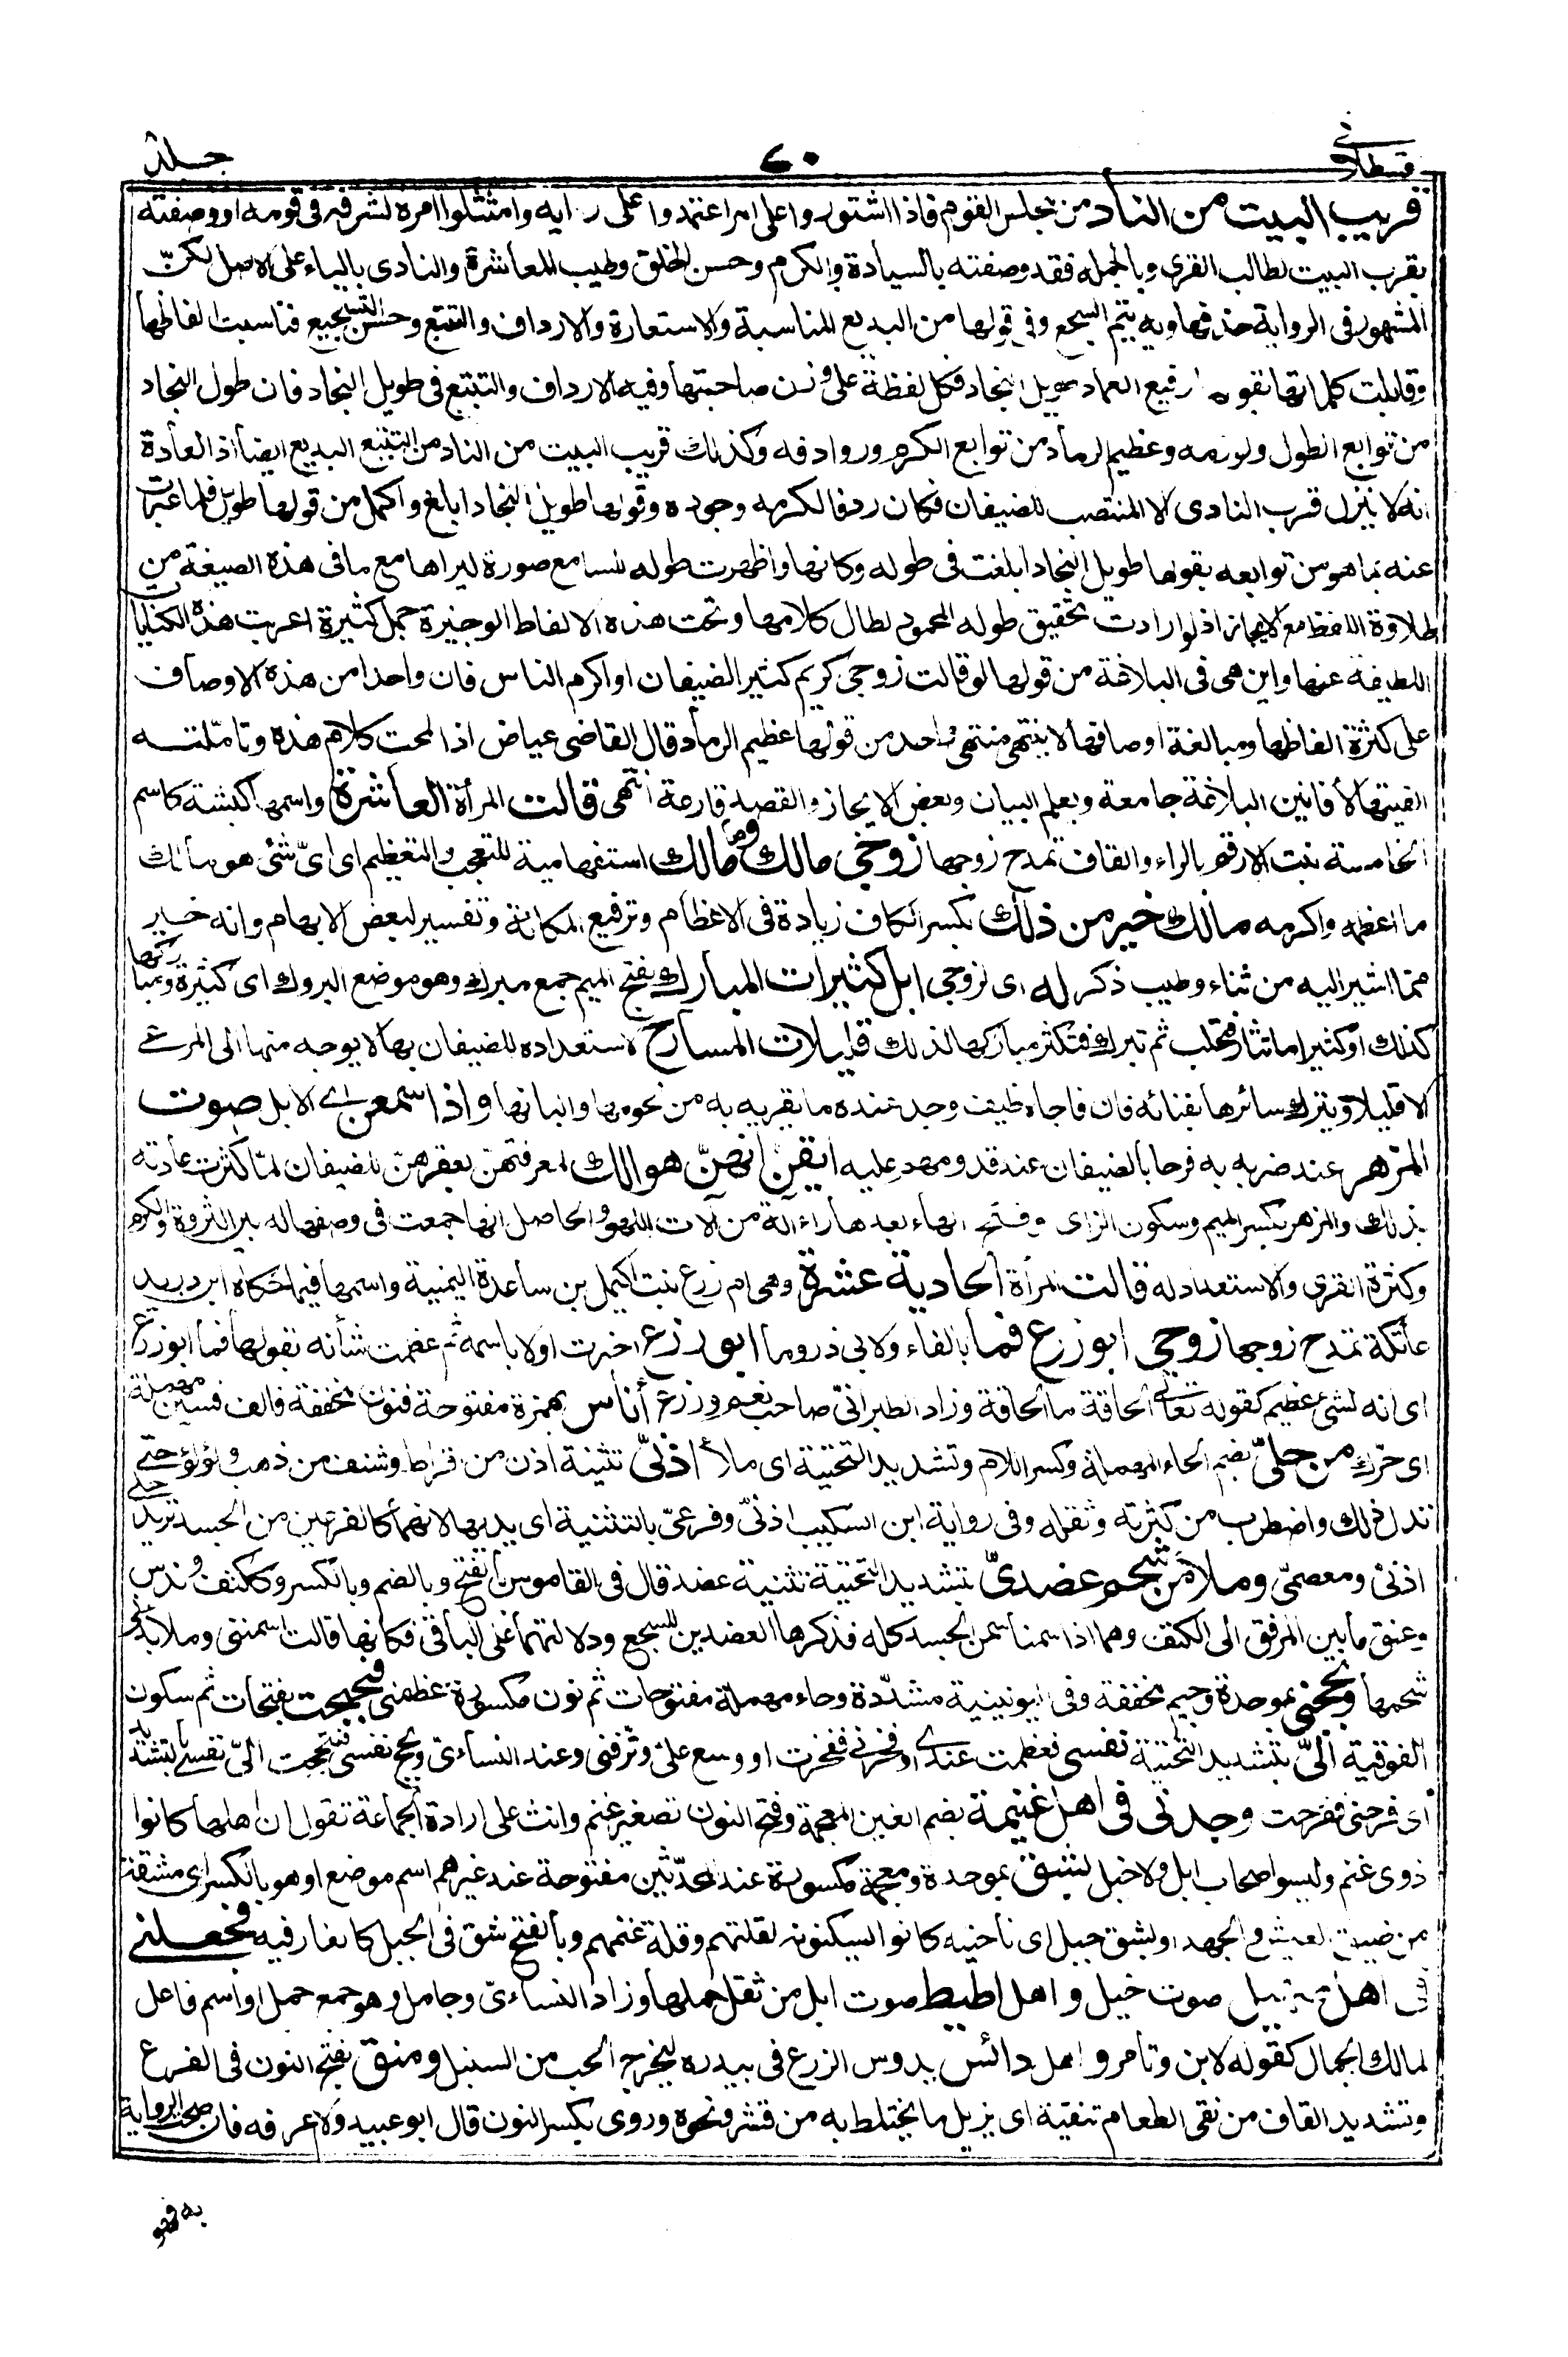 قسطلانی
٧٠
جلد
قريب البيت من الناد من مجلس القوم فاذا اشتوروا على امر اعتمدوا على رايه وامتثلوا امره لشرفه فى قومه او وصفته
بقرب البيت لطالب القرى وبالجملة فقد وصفته بالسيادة والكرم وحسن الخلق وطيب المعاشرة والنادى بالياء على الاصل لكنّ
المشهور فى الرواية حذفها وبه يتم السجع وفى قولها من البديع المناسبة والاستعارة والارداف والتتبع وحسن التسجيع فناسبت الفاظها
وقابلت كلماتها بقوله رفيع العماد طويل النجاد فكل لفظة على وزن صاحبتها وفيه الارداف والتتبع فى طويل النجاد فان طول النجاد
من توابع الطول ولوزمه وعظيم الرماد من توابع الكرم وروادفه وكذلك قريب البيت من الناد من التتبع البديع ايضا اذ العادة
انه لا ينزل قرب النادى الا المنتصب للضيفان فكان ردفا لكرمه وجوده وقولها طويل النجاد ابلغ واكمل من قولها طويل فلما عبرت
عنه بما هو من توابعه بقولها طويل النجاد ابلغت فى طوله وكانها واظهرت طوله للسامع صورة ليراها مع ما فى هذه الصيغة من
طلاوة اللفظ مع الايجاز اذ لو ارادت تحقيق طوله المحمود لطال كلامها وتحت هذه الالفاظ الوجيزة جمل كثيرة اعربت هذه الكنايات
اللطيفة عنها واين هى فى البلاغة من قولها لو قالت زوجى كريم كثير الضيفان او اكرم الناس فان واحدا من هذه الاوصاف
على كثرة الفاظها ومبالغة اوصافها لا ينتهى منتهى واحد من قولها عظيم الرماد قال القاضى عياض اذا لمحت كلام هذه وتاملته
الفيتها لأفانين البلاغة جامعة وبعلم البيان وبعض الايجاز والقصد قارعة انتهى قالت المرأة العاشرة واسمها كبشة كاسم
الخامسة بنت الارقم بالراء والقاف تمدح زوجها زوجى مالك وما مالك استفهامية للتعجب والتعظيم اى اىّ شئ هو مالك
ما اعظمه واكرمه مالك خير من ذلك بكسر الكاف زيادة فى الاعظام وترفيع المكانة وتفسير لبعض الابهام وانه خير
مما اشير اليه من ثناء وطيب ذكر له اى لزوجى ابل كثيرات المبارك بفتح الميم جمع مبرك وهو موضع البروك اى كثيرة ومباركها
كذلك او كثيرا ما تثار فتحلب ثم تبرك فتكثر مباركها لذلك قليلات المسارح لاستعداده للضيفان بها لا يوجه منها الى المرعى
الا قليلا ويترك سائرها بفنائه فان فاجاه ضيف وجد عنده ما يقريه به من لحومها والبانها واذا سمعن اى الابل صوت
المزهر عند ضربه به فرحا بالضيفان عند قدومهم عليه ايقنّ انهنّ هوالك لمعرفتهن بعقرهنّ للضيفان لما كثرت عادته
بذلك والمزهر بكسر الميم وسكون الزاى وفتح الهاء بعدها راء آلة من آلات اللهو والحاصل انها جمعت فى وصفها له بين الثروة والكرم
وكثرة القرى والاستعداد له قالت المرأة الحادية عشرة وهى ام زرع بنت اكيمل بن ساعدة اليمنية واسمها فيما حكاه ابن دريد
عاتكة تمدح زوجها زوجى ابو زرع فما بالفاء ولابى ذر وما ابو زرع اخبرت اولا باسمه ثم عظمت شأنه بقولها فما ابو زرع
اى انه لشئ عظيم كقوله تعالى الحاقة ما الحاقة وزاد الطبرانى صاحب نعم وزرع أناس بهمزة مفتوحة فنون مخففة فالف فسين مهملة
اى حرك من حلىّ بضم الحاء المهملة وكسر اللام وتشديد التحتية اى ملأ اذنىّ تثنية اذن من اقراط وشنف من ذهب ولؤلؤ حتى
تدلى ذلك واضطرب من كثرته وثقله وفى رواية ابن السكيت اذنىّ وفرعىّ بالتثنية اى يديها لانهما كالفرعين من الجسد تريد حلى
اذنىّ ومعصمىّ وملأ من شحم عضدىّ بتشديد التحتية تثنية عضد قال فى القاموس بالفتح وبالضم وبالكسر وككتف وندس
وعنق ما بين المرفق الى الكتف وهما اذا سمنا سمن الجسد كله فذكرها العضدين للسجع ودلالتهما على الباقى فكانها قالت اسمننى وملأ بدنى
شحمها وبجحنى بموحدة وجيم مخففة وفى اليونينية مشددة وحاء مهملة مفتوحات ثم نون مكسورة عظمنى فبجحت بفتحات ثم سكون
الفوقية الىّ بتشديد التحتية نفسى فعظمت عندى او فخرنى ففخرت او وسع علىّ وترفنى وعند النساءى وبجح نفسى فتبجحت الىّ نفسى بالتشديد
اى فرحنى ففرحت وجدنى فى اهل غنيمة بضم الغين المعجمة وفتح النون تصغير غنم وانث على ارادة الجماعة تقول ان اهلها كانوا
ذوى غنم وليسوا اصحاب ابل ولا خيل بشق بموحدة ومعجمة مكسورة عند المحدثين مفتوحة عند غيرهم اسم موضع او هو بالكسر اى مشقة
من ضيق العيش والجهد او بشق جبل اى ناحيته كانوا يسكنونه لقلتهم وقلة غنمهم وبالفتح شق فى الجبل كالغار فيه فجعلنى
فى اهل صهيل صوت خيل واهل اطيط صوت ابل من ثقل حملها وزاد النساءى وجامل وهو جمع جمل او اسم فاعل
لمالك الجمال كقوله لابن وتامر واهل دائس يدوس الزرع فى بيدره ليخرج الحب من السنبل ومنق بفتح النون فى الفرع
وتشديد القاف من نقى الطعام تنقية اى يزيل ما يختلط به من قشر ونحوه وروى بكسر النون قال ابو عبيد ولا اعرفه فان صحت الرواية
به فهو